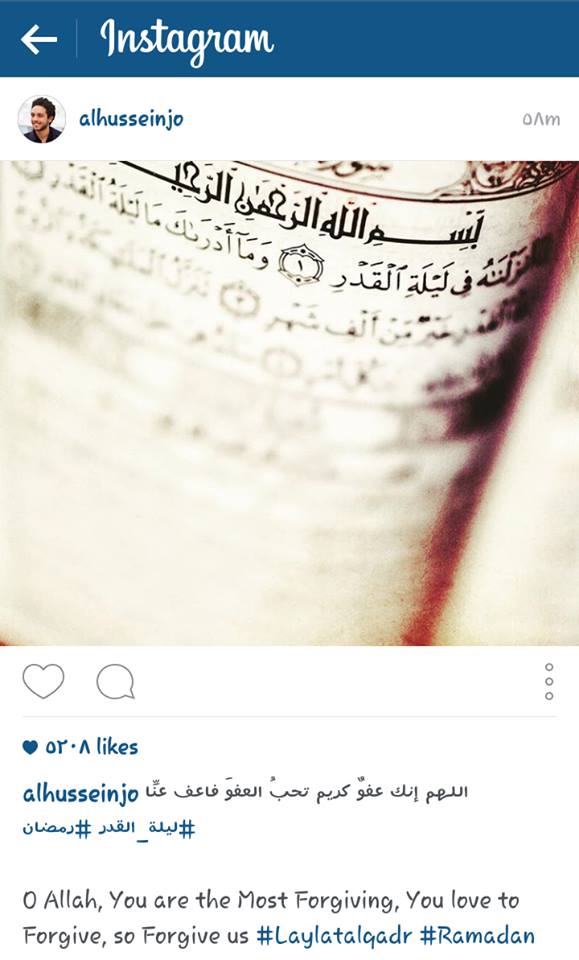 Instagram
alhusseinjo
٥٨m
سورة
بِسْمِ اللهِ الرَّحْمٰنِ الرَّحِيمِ
فِي لَيْلَةِ ٱلْقَدْرِ ١ وَمَآ أَدْرَىٰكَ مَا لَيْلَةُ ٱلْقَدْرِ
خَيْرٌ مِّنْ أَلْفِ شَهْرٍ ٣
٥٢٠٨ likes
alhusseinjo اللهم إنك عفوٌ كريم تحبُ العفوَ فاعف عنَّا
#ليلة_القدر #رمضان
O Allah, You are the Most Forgiving, You love to
Forgive, so Forgive us #Laylatalqadr #Ramadan